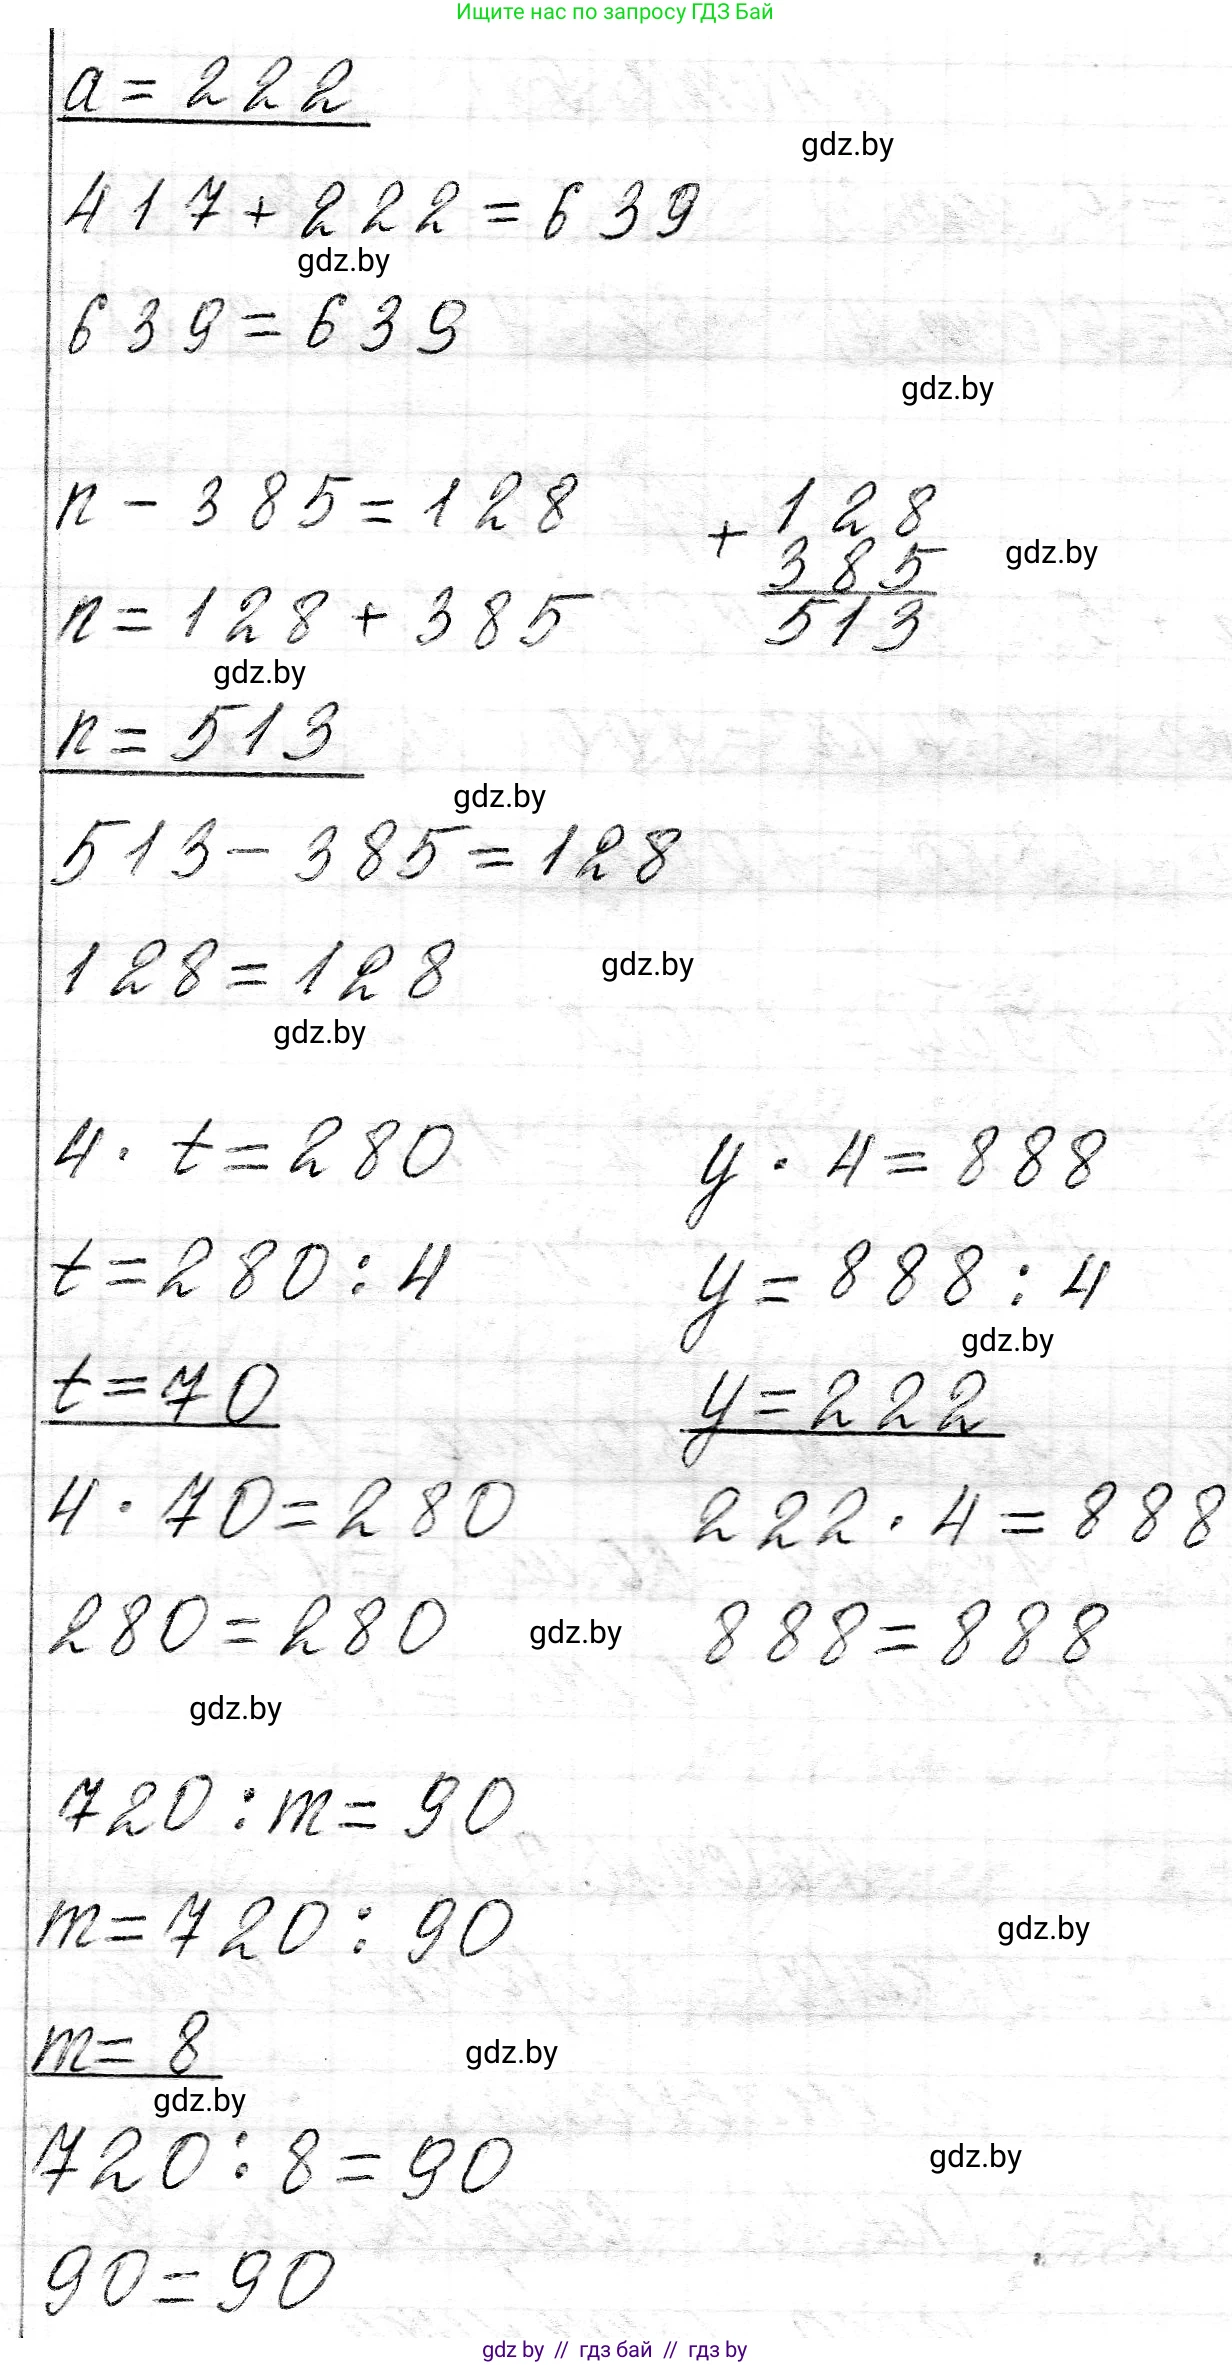 Ищите нас по запросу ГДЗ Бай
a = 222
gdz.by
417 + 222 = 639
gdz.by
639 = 639
gdz.by
n - 385 = 128
+ 128
385
513
gdz.by
n = 128 + 385
gdz.by
n = 513
gdz.by
513 - 385 = 128
128 = 128
gdz.by
gdz.by
4 · t = 280
t = 280 : 4
t = 70
4 · 70 = 280
280 = 280
gdz.by
gdz.by
y · 4 = 888
y = 888 : 4
gdz.by
y = 222
222 · 4 = 888
888 = 888
720 : m = 90
m = 720 : 90
gdz.by
m = 8
gdz.by
gdz.by
720 : 8 = 90
gdz.by
90 = 90
gdz by // гдз бай // гдз by